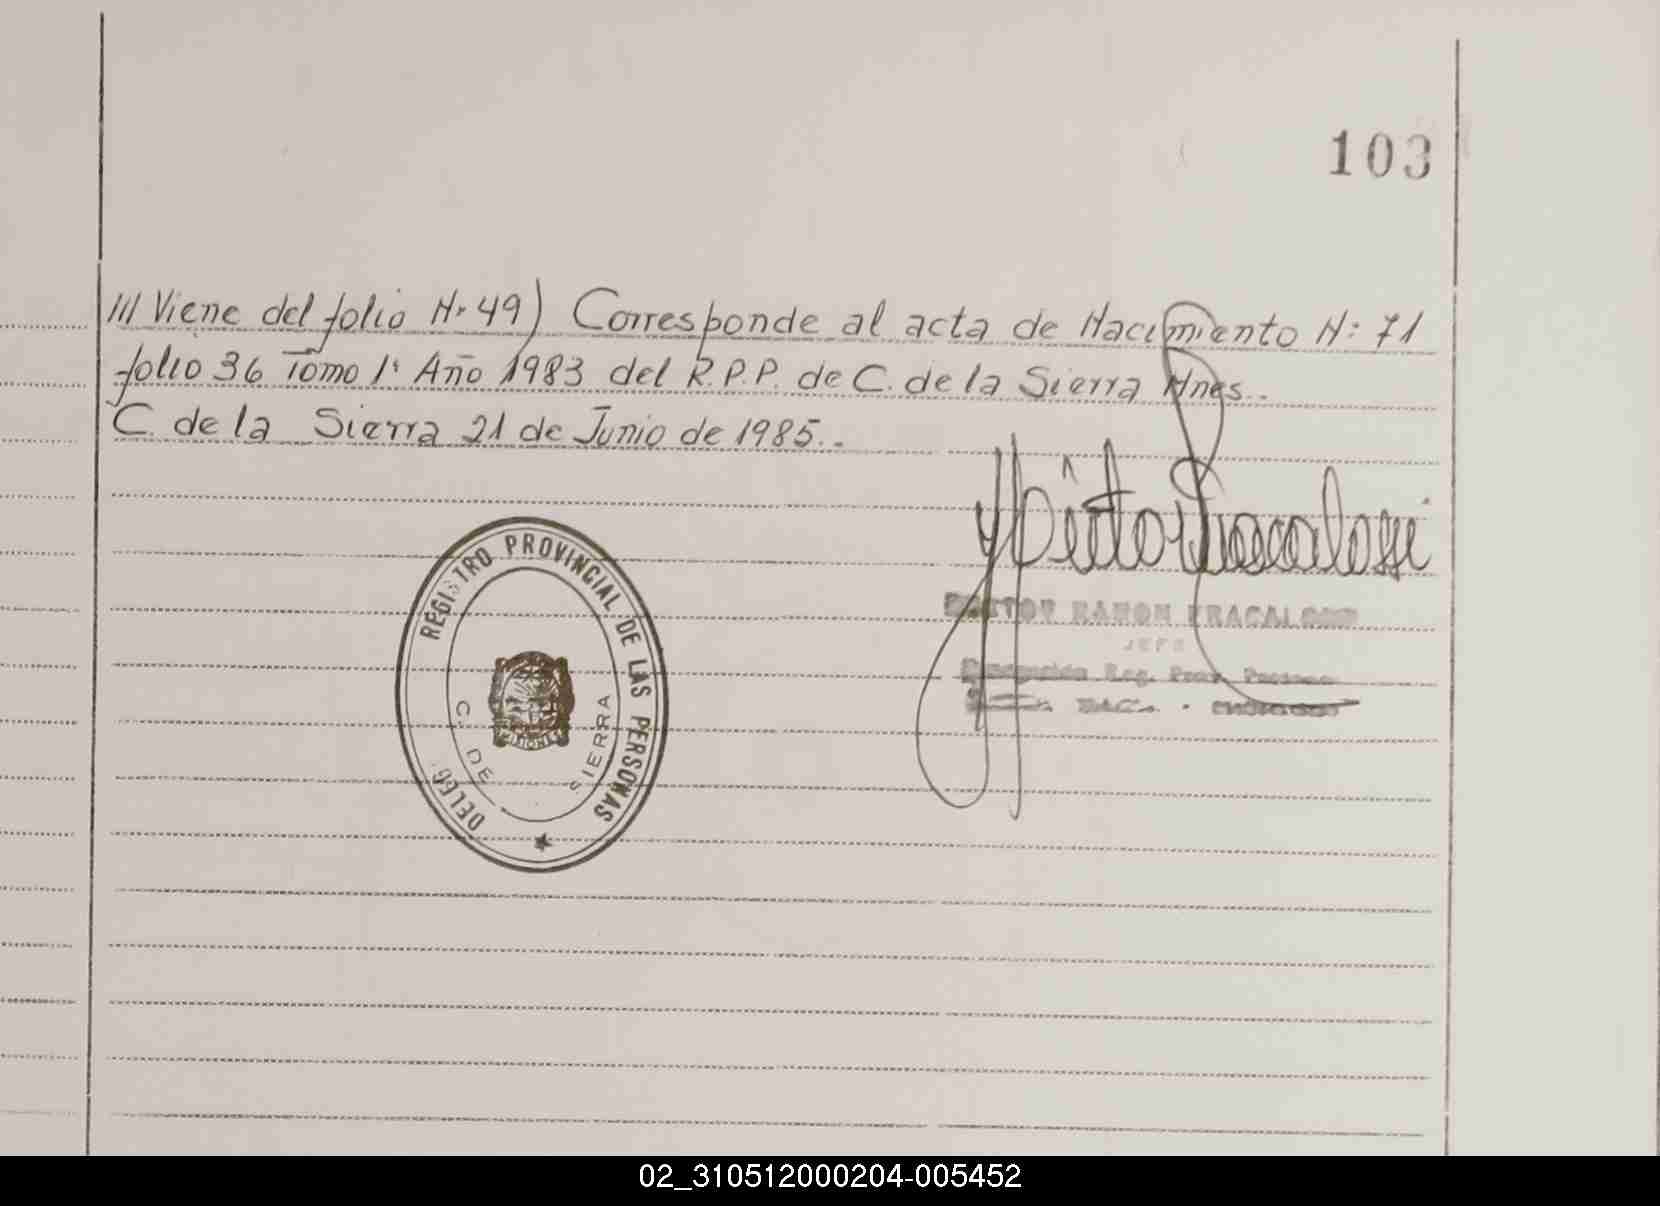 103
/// Viene del folio N: 49) Corresponde al acta de Nacimiento N: 71
folio 36 Tomo 1º Año 1983 del R.P.P. de C. de la Sierra Mnes..
C. de la Sierra 21 de Junio de 1985..
REGISTRO PROVINCIAL DE LAS PERSONAS
DELEG.
C. DE S. SIERRA
MISIONES
RAMON FRACALOSSI
JEFE
Reg. Prov. Personas
02_310512000204-005452